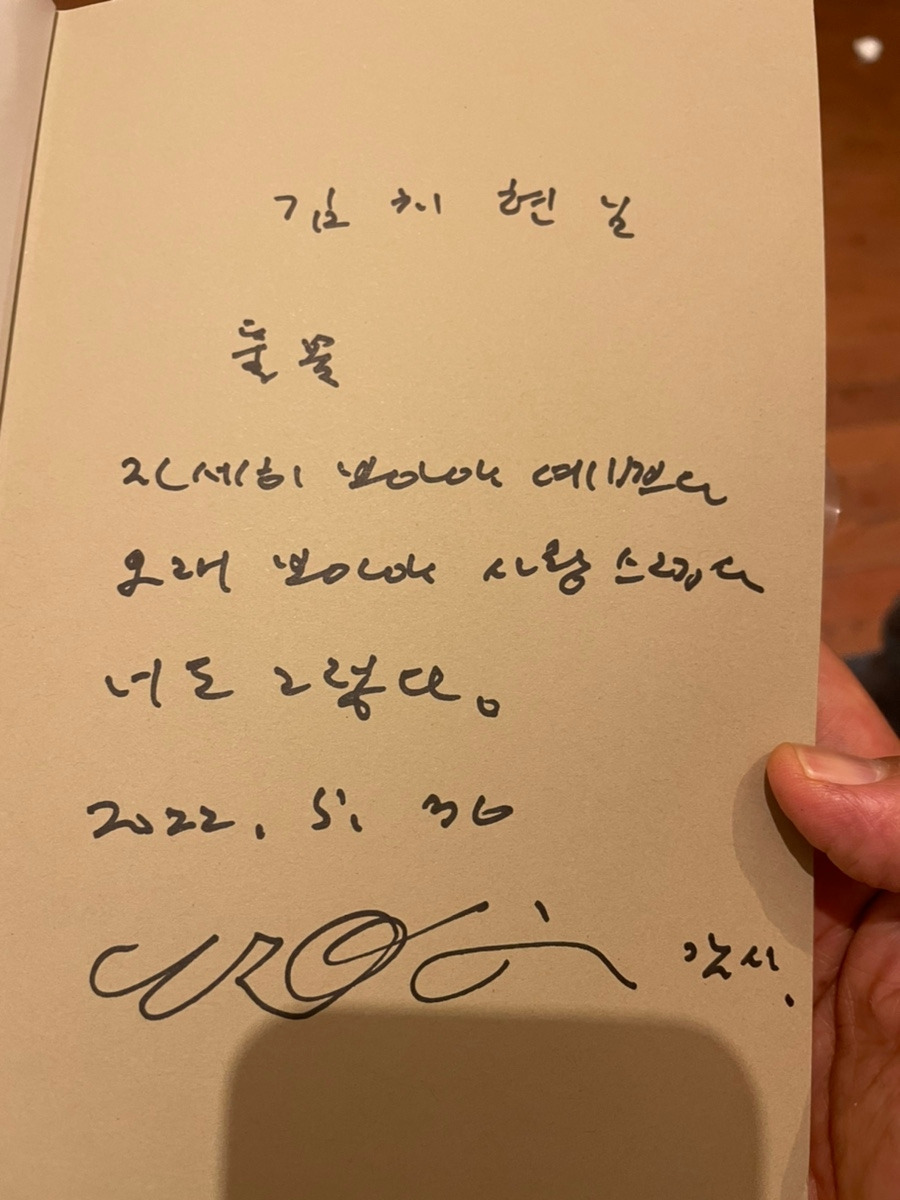 김 치 현 님
풀 꽃
자세히 보아야 예쁘다
오래 보아야 사랑스럽다
너도 그렇다.
2022. 5. 30